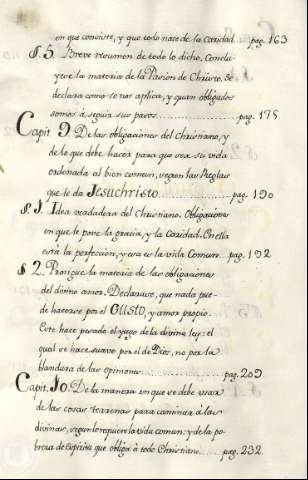 en que consiste, y que todo nace de la Caridad. pag. 163
§. 5. Breve resumen de todo lo dicho. Conclu-
yese la materia de la Pasion de Christo. Se
declara como se nos aplica, y quan obligados
somos à seguir sus pasos............pag. 175
Capit. 9. De las obligaciones del Christiano, y
de lo que debe hacer para que sea su vida
ordenada al bien comun, segun las Reglas
que le da Jesuchristo............pag. 190
§. 1. Idea verdadera del Christiano. Obligaciones
en que le pone la gracia, y la Caridad. En ella
està la perfeccion, y esa es la vida Comun. pag. 192
§ 2. Prosigue la materia de las obligaciones
del divino amor. Declarase, que nada pue-
de hacerse por el Gusto, y amor propio.
Este hace pesado el yugo de la divina ley: el
qual se hace suave por el de Dios, no por la
blandura de las opiniones............pag. 209
Capit. 10. De la manera en que se debe usar
de las cosas terrenas para caminar à las
divinas, segun lo requiere la vida comun: y de la po-
breza de espiritu que obliga à todo Christiano.....pag. 232.